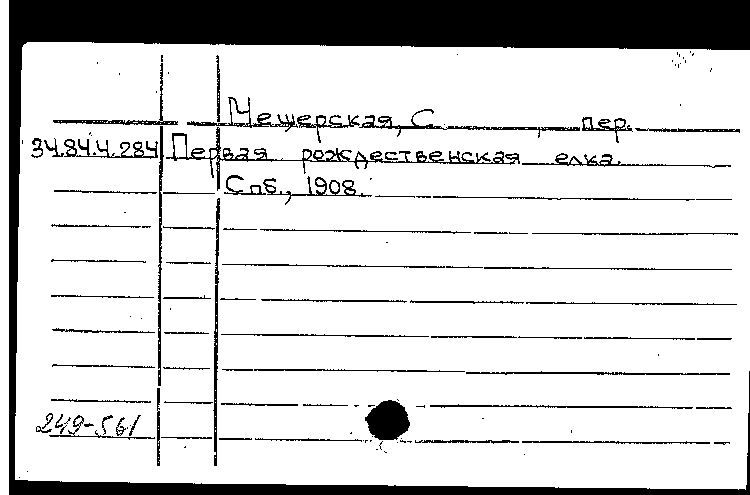 Мещерская, С , пер.
34.84.4.284 Первая рождественская елка.
Спб., 1908.
249-561